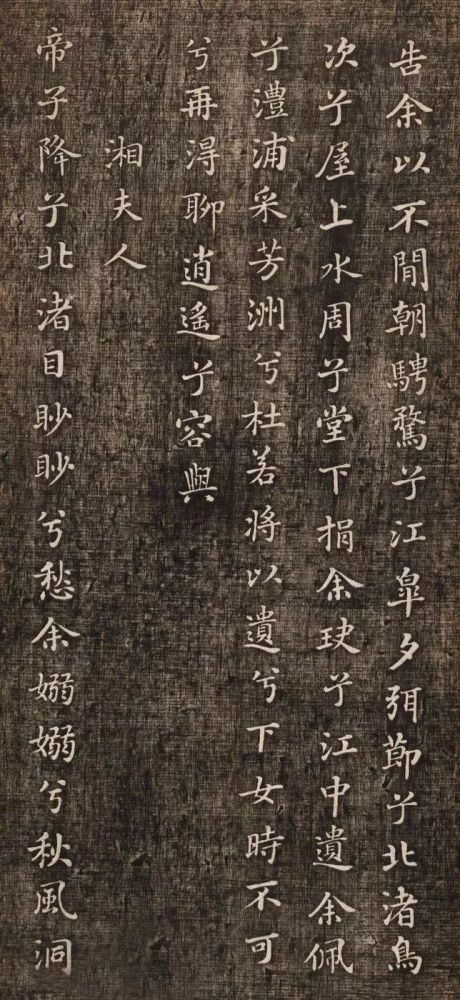 告余以不閒朝騁騖兮江皐夕弭節兮北渚鳥
次兮屋上水周兮堂下捐余玦兮江中遺余佩
兮澧浦采芳洲兮杜若將以遺兮下女時不可
兮再淂聊逍遙兮容與
湘夫人
帝子降兮北渚目眇眇兮愁余嫋嫋兮秋風洞